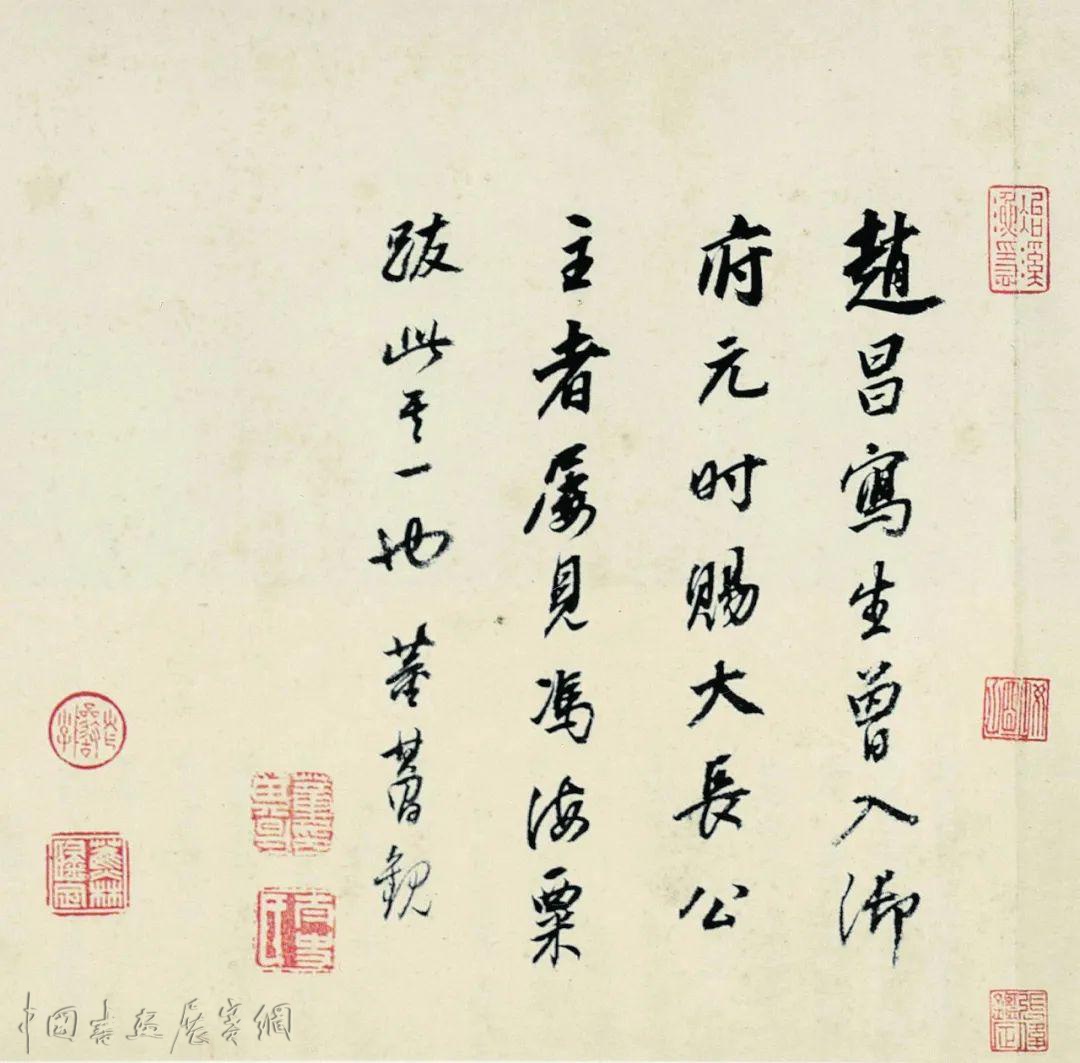 趙昌寫生曾入御
府元时賜大長公
主者屡見馮海粟
跋此其一也 董其昌觀
蕉林
中國書画展賽網